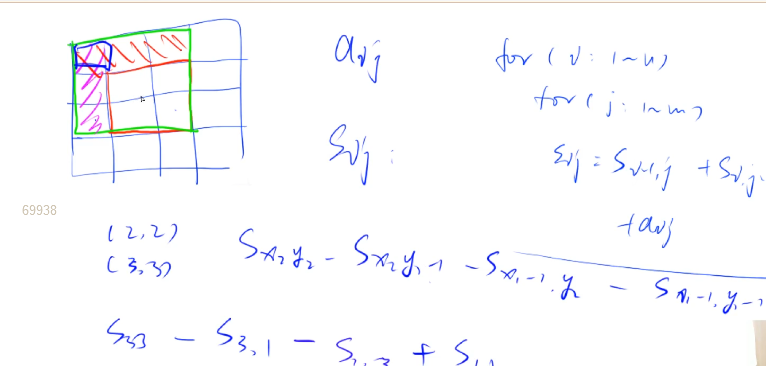 aij
for ( i : 1~n)
for ( j : 1~m)
Sij :
Sij = Si-1,j + Si,j-
+ aij
69938
(2,2)
(3,3)
Sx₂y₂ - Sx₂y₁-1 - Sx₁-1.y₂ - Sx₁-1,y₁-1
S33 - S3,1 - S1,3 + S11